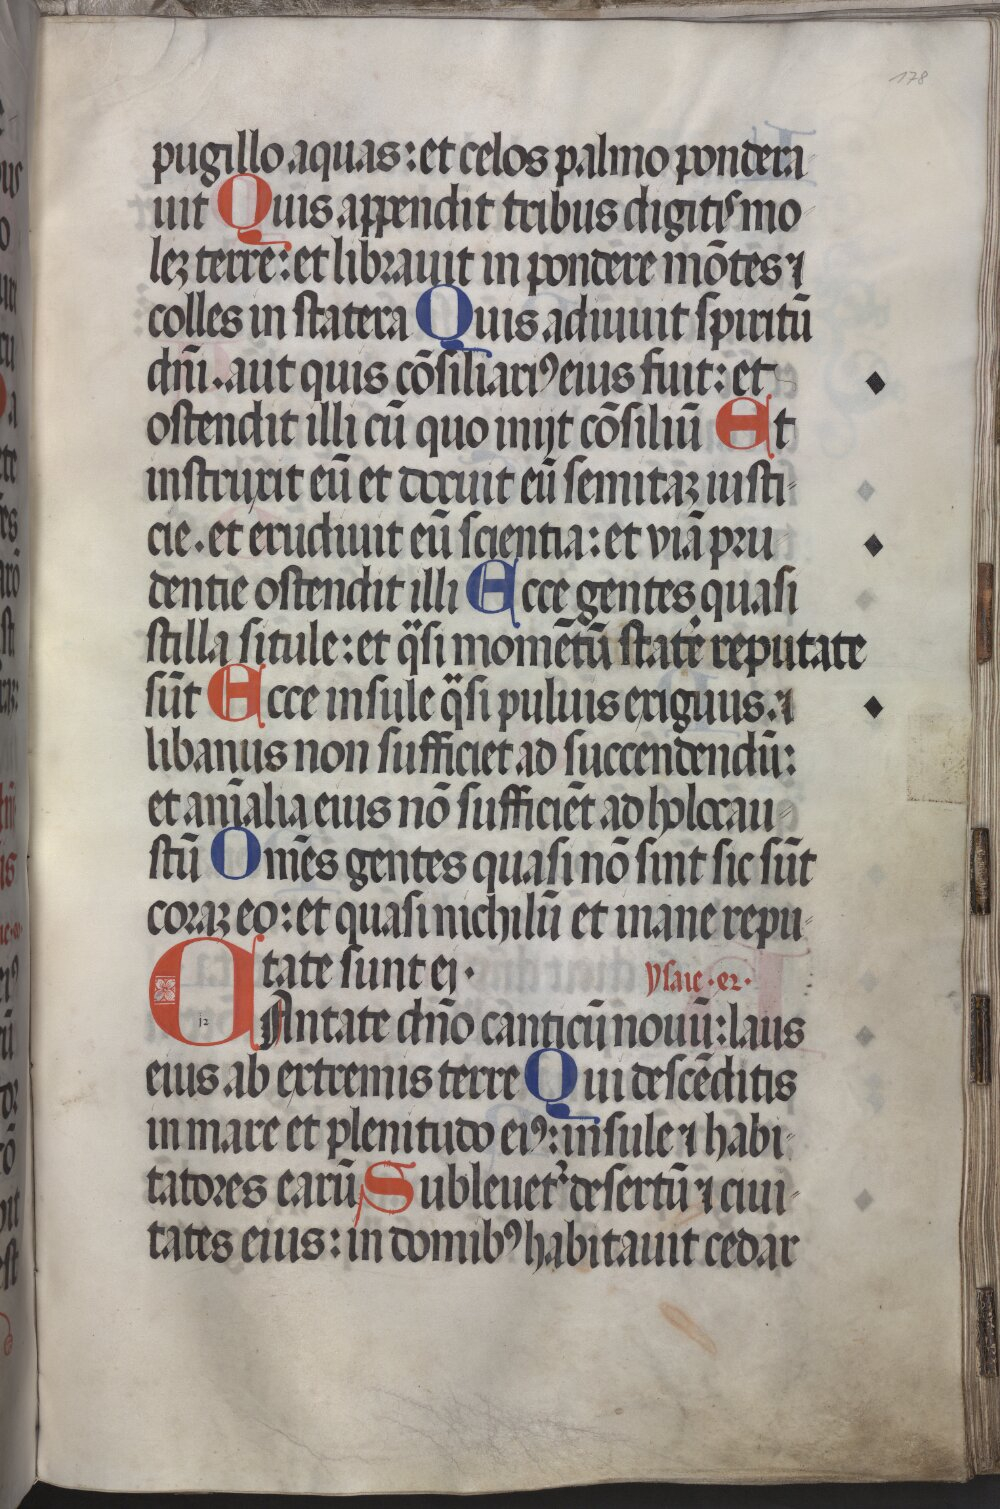 178
pugillo aquas: et celos palmo pondera
uit Quis appendit tribus digitis mo
leꝫ terre: et librauit in pondere mōtes ⁊
colles in statera Quis adiuuit spiritū
dn̄i. aut quis cōsiliariꝰ eius fuit: et
ostendit illi cū quo inijt cōsiliū Et
instruxit eū et docuit eū semitaꝫ iusti
cie. et erudiuit eū scientia: et viā pru
dentie ostendit illi Ecce gentes quasi
stilla situle: et q̈si momētū state᷒ reputate
sūt Ecce insule q̈si puluis exiguus. ⁊
libanus non sufficiet ad succendendū:
et anīalia eius nō sufficiēt ad holocau
stū Om̄es gentes quasi nō sint sic sūt
coraꝫ eo: et quasi nichilū et inane repu
tate sunt ei.
ysaie. 42.
CAntate dn̄o canticū nouū: laus
eius ab extremis terre Qui descēditis
in mare et plenitudo eiꝰ: insule ⁊ habi
tatores earū Subleuet᷑ desertū ⁊ ciui
tates eius: in domibꝰ habitauit cedar